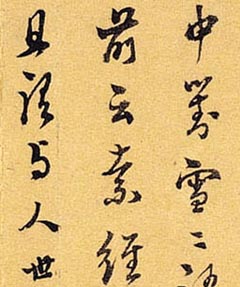 中對雪二
前云素
且与人世